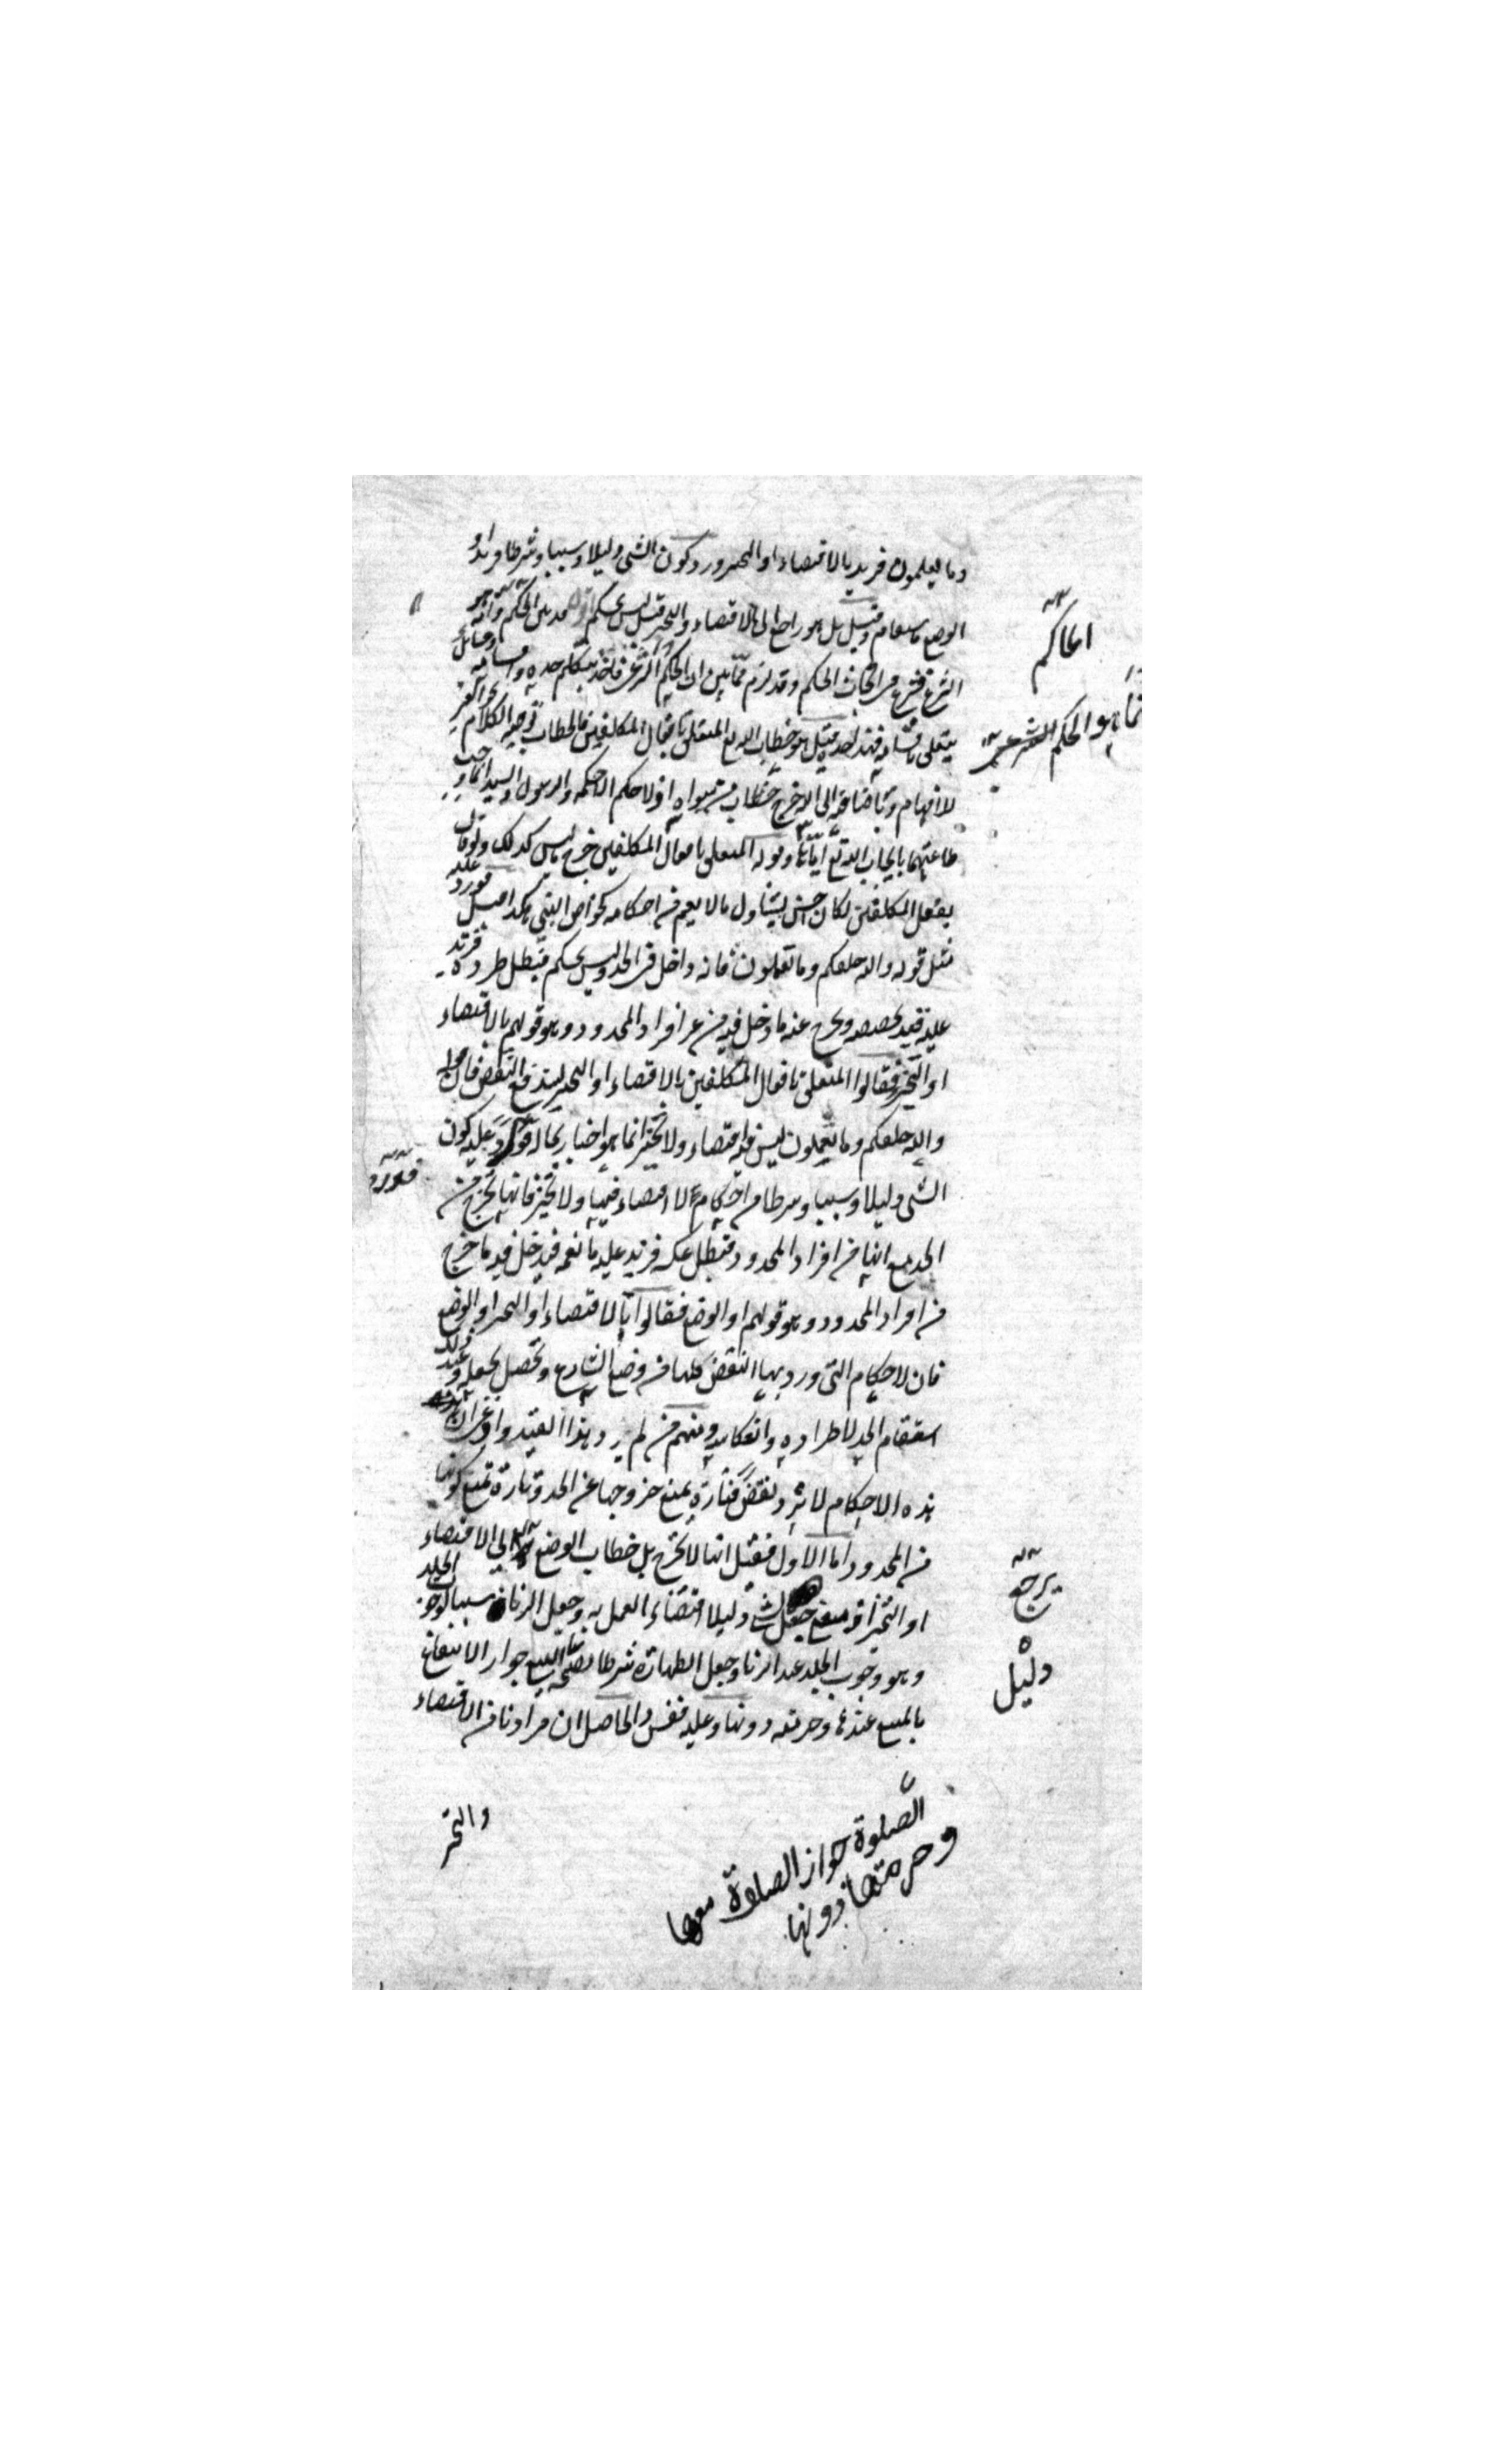 وما يعلمون فزيد بالاقتضاء او التخيير وورد كون الشئ دليلا وسببا وشرطا فزيد او
الوضع فاستقام وقيل بل هو راجع الى الاقتضاء والتخيير وقيل ليس بحكم
الشرع فشرع فى ابحاث الحكم وقد لزم مما بين ان الحكم الشرعى
يتعلق باقسامه فهذا حده قيل هو خطاب الله تع المتعلق بافعال المكلفين فالخطاب توجيه الكلام
للافهام وباضافته الى الله خرج خطاب من سواه اذ لا حكم الا حكمه والرسول والسيد انما وجب
طاعتهما بايجاب الله تع اياها وقوله المتعلق بافعال المكلفين خرج ما ليس كذلك ولو قال
بفعل المكلفين لكان احسن ليتناول ما لا يعم من احكامه كخواص النبى فورد عليه
مثل قوله والله خلقكم وما تعملون فانه داخل فى الحد وليس بحكم فبطل طرده فزيد
عليه قيد يخصصه ويخرج عنه ما دخل فيه من غير افراد المحدود وهو قولهم بالاقتضاء
او التخيير فقالوا المتعلق بافعال المكلفين بالاقتضاء او التخيير ليندفع النقض فان قوله
والله خلقكم وما تعملون ليس فيه اقتضاء ولا تخيير انما هو اخبار بحال له فورد عليه كون
الشئ دليلا وسببا وشرطا من احكام لا اقتضاء فيها ولا تخيير فانها تخرج من
الحد مع انها من افراد المحدود فبطل عكسه فزيد عليه ما يعمه فيدخل فيه ما خرج
من افراد المحدود وهو قولهم او الوضع فقالوا بالاقتضاء او التخيير او الوضع
فان الاحكام التى ورد بها النقض كلها من وضع الشارع وتحصل بجعله وعند ذلك
استقام الحد لاطراده وانعكاسه ومنهم من لم يزد هذا القيد واعترض ان
هذه الاحكام لا ترد نقضا فتارة يمنع خروجها عن الحد وتارة يمنع كونها
من المحدود اما الاول فقيل انها لا تخرج بل خطاب الوضع يرجع الى الاقتضاء
او التخيير اذ معنى جعل الشئ دليلا اقتضاء العمل به وجعل الزنا سببا لوجوب الجلد
وهو وجوب الجلد عند الزنا وجعل الطهارة شرطا لصحة البيع جواز الانتفاع
بالمبيع عندها وحرمته دونها وعليه فقس والحاصل ان مرادنا من الاقتضاء
والتخير
الصلوة جواز الصلوة معها
وحرمتها دونها
الحاكم
هو الحكم الشرعى
فورد
يرجع
دليل